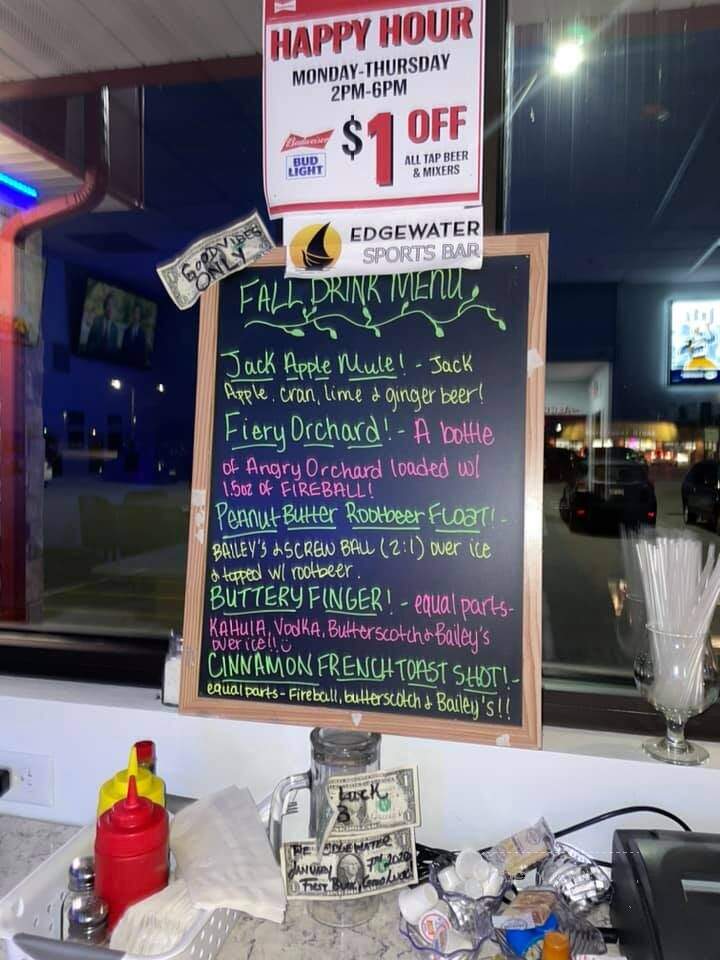 HAPPY HOUR
MONDAY-THURSDAY
2PM-6PM
Budweiser
BUD
LIGHT
$1 OFF
ALL TAP BEER
& MIXERS
EDGEWATER
SPORTS BAR
GOOD VIBES
ONLY
FALL DRINK MENU
Jack Apple Mule! - Jack
Apple, cran, lime & ginger beer!
Fiery Orchard! - A bottle
of Angry Orchard loaded w/
1.5oz of FIREBALL!
Peanut Butter Rootbeer Float! -
BAILEY'S & SCREW BALL (2:1) over ice
& topped w/ rootbeer.
BUTTERY FINGER! - equal parts-
KAHULA, Vodka, Butterscotch & Bailey's
over ice!!
CINNAMON FRENCH TOAST SHOT! -
equal parts - Fireball, butterscotch & Bailey's!!
Luck
3
THE EDGEWATER
JANUARY 7TH, 2020
First Buck, Good Luck!